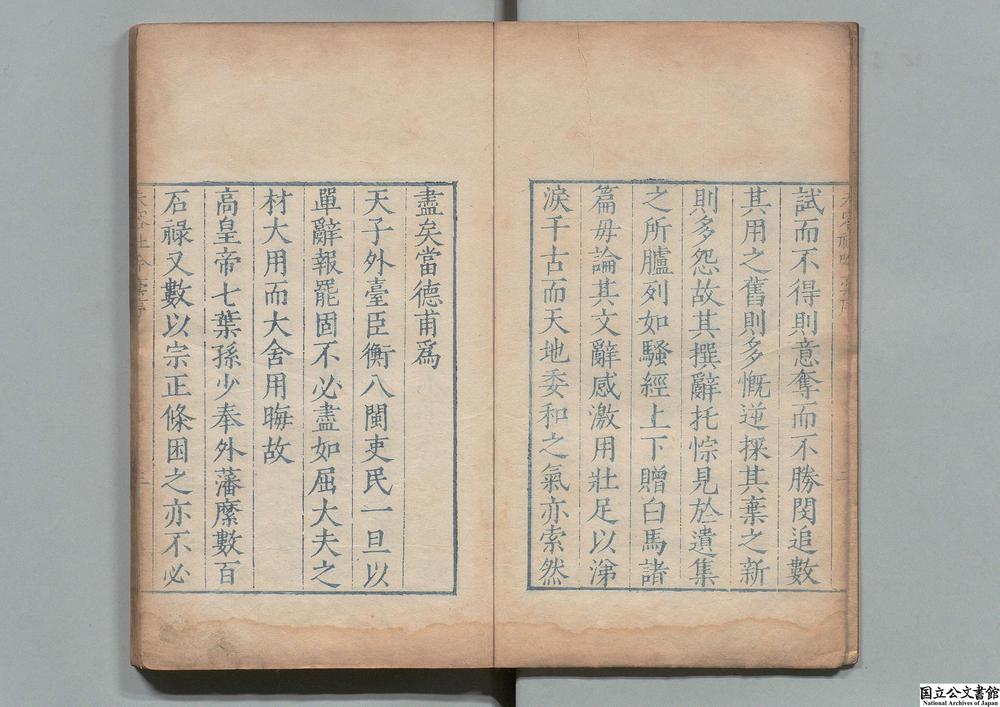 試而不得則意奪而不勝閔追數
其用之舊則多慨逆探其棄之新
則多怨故其撰辭托悰見於遺集
之所臚列如騷經上下贈白馬諸
篇毋論其文辭感激用壯足以涕
淚千古而天地委和之氣亦索然
盡矣當德甫爲
天子外臺臣衡八閩吏民一旦以
單辭報罷固不必盡如屈大夫之
材大用而大舍用晦故
高皇帝七葉孫少奉外藩縻數百
石祿又數以宗正條困之亦不必
国立公文書館
National Archives of Japan